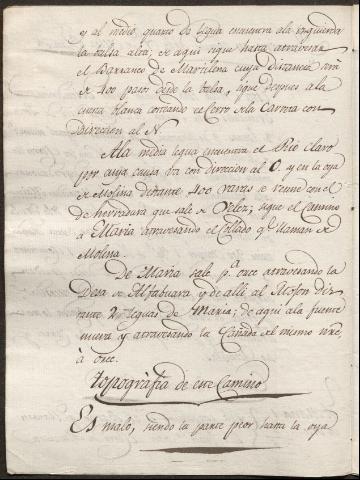 y al medio quarto de legua encuentra ala yzquierda
la balsa alta; de aqui sigue hasta atravesar
el Barranco de Martilena cuya distancia será
de 200 pasos desde la balsa, sigue despues ala
cuesta blanca cortando el Cerro de la Carrota con
direccion al N.
Ala media legua encuentra el Rio Claro
por cuya causa va con direccion al O. y en la oya
de Molina distante 400 varas se reune con el
de herradura que sale de Velez; sigue el Camino
a Maria atravesando el Collado q.e llaman de
Molina.
De Maria sale p.a orce atravesando la
Desa de Alfahuara, y de alli al Moson dis
tante 2 leguas de Maria; de aqui ala fuente
nueva y atravesando la Cañada del mismo nre,
à orce.
topografia de este Camino
Es malo, siendo la parte peor hasta la oya